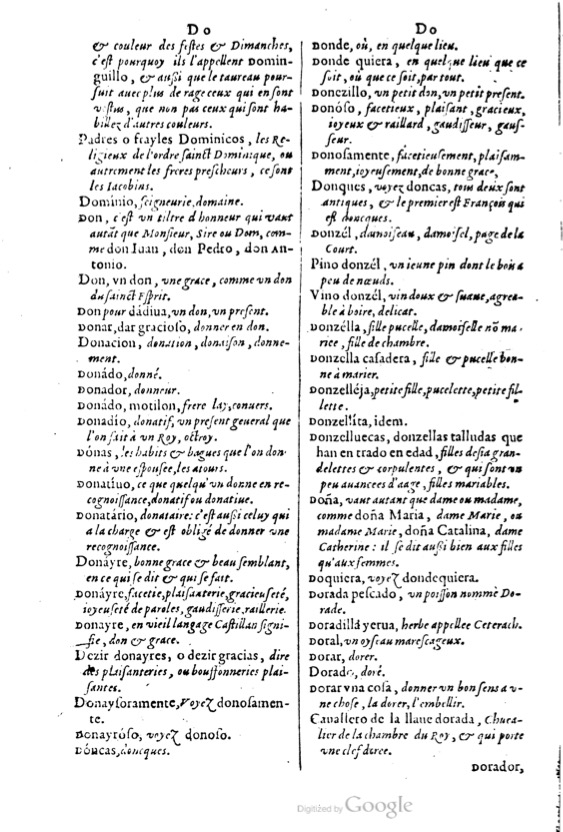 Do
& couleur des festes & Dimanches,
c'est pourquoy ils l'appellent Domin-
guillo, & aussi que le taureau pour-
suit auec plus de rage ceux qui en sont
vestus, que non pas ceux qui sont ha-
billez d'autres couleurs.
Padres o frayles Dominicos, les Re-
ligieux de l'ordre sainct Dominique, ou
autrement les freres prescheurs, ce sont
les Iacobins.
Domínio, seigneurie, domaine.
Don, c'est vn tiltre d'honneur qui vaut
autāt que Monsieur, Sire ou Dom, com-
me don Iuan, don Pedro, don An-
tonio.
Don, vn don, vne grace, comme vn don
du sainct Esprit.
Don pour dádiua, vn don, vn present.
Donar, dar gracioso, donner en don.
Donacion, donation, donaison, donne-
ment.
Donádo, donné.
Donador, donneur.
Donádo, motilon, frere lay, conuers.
Donadío, donatif, vn present general que
l'on fait à vn Roy, octroy.
Dónas, les habits & bagues que l'on don-
ne à vne espousee, les atours.
Donatíuo, ce que quelqu'vn donne en re-
cognoissance, donatif ou donatiue.
Donatário, donataire: c'est aussi celuy qui
a la charge & est obligé de donner vne
recognoissance.
Donáyre, bonne grace & beau semblant,
en ce qui se dit & qui se fait.
Donáyre, facetie, plaisanterie, gracieuseté,
ioyeuseté de paroles, gaudisserie, raillerie.
Donayre, en vieil langage Castillan signi-
fie, don & grace.
Dezir donayres, o dezir gracias, dire
des plaisanteries, ou bouffonneries plai-
santes.
Donaysoramente, Voyez donosamen-
te.
Donayróso, voyez donoso.
Dóncas, doncques.
Do
Donde, où, en quelque lieu.
Donde quiera, en quelque lieu que ce
soit, où que ce soit, par tout.
Donezillo, vn petit don, vn petit present.
Donóso, facetieux, plaisant, gracieux,
ioyeux & raillard, gaudisseur, gaus-
seur.
Donosamente, facetieusement, plaisam-
ment, ioyeusement, de bonne grace,
Donques, voyez doncas, tous deux sont
antiques, & le premier est François qui
est doncques.
Donzél, damoiseau, damoisel, page de la
Court.
Pino donzél, vn ieune pin dont le bois a
peu de nœuds.
Vino donzél, vin doux & suaue, agrea-
ble à boire, delicat.
Donzélla, fille pucelle, damoiselle nō ma-
riee, fille de chambre.
Donzella casadera, fille & pucelle bon-
ne à marier.
Donzelléja, petite fille, pucelette, petite fil-
lette.
Donzellíta, idem.
Donzelluecas, donzellas talludas que
han entrado en edad, filles desia gran-
delettes & corpulentes, & qui sont vn
peu auancees d'aage, filles mariables.
Doña, vaut autant que dame ou madame,
comme doña Maria, dame Marie, ou
madame Marie, doña Catalina, dame
Catherine: il se dit aussi bien aux filles
qu'aux femmes.
Doquiera, voyez dondequiera.
Dorada pescado, vn poisson nommé Do-
rade.
Doradilla yerua, herbe appellee Ceterach.
Doral, vn oyseau marescageux.
Dorar, dorer.
Dorado, doré.
Dorar vna cosa, donner vn bon sens a v-
ne chose, la dorer, l'embellir.
Cauallero de la llaue dorada, Cheua-
lier de la chambre du Roy, & qui porte
vne clef doree.
Dorador,
Digitized by Google